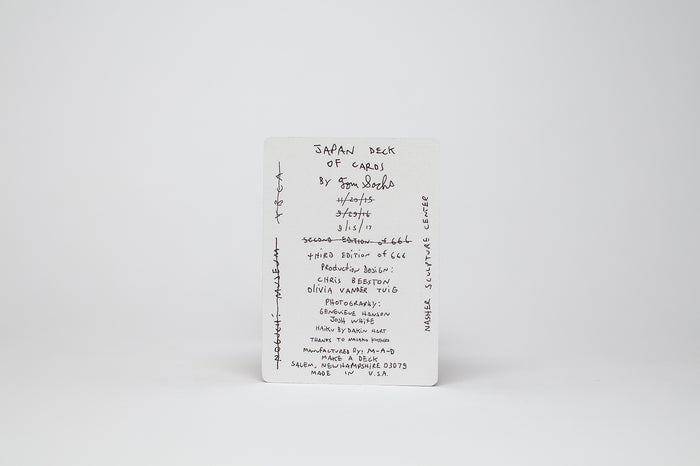 JAPAN DECK
OF CARDS
BY Tom Sachs
11/20/15
3/23/16
9/15/17
SECOND EDITION of 666
THIRD EDITION of 666
Production Design:
CHRIS BEESTON
OLIVIA VANDER TUIG
PHOTOGRAPHY:
GENEVIEVE HANSON
JOSH WHITE
HAIKU BY DAKIN HART
THANKS TO
MANUFACTURED By: M-A-D
MAKE A DECK
SALEM, NEW HAMPSHIRE 03079
MADE IN U.S.A.
NOGUCHI MUSEUM YBCA
NASHER SCULPTURE CENTER